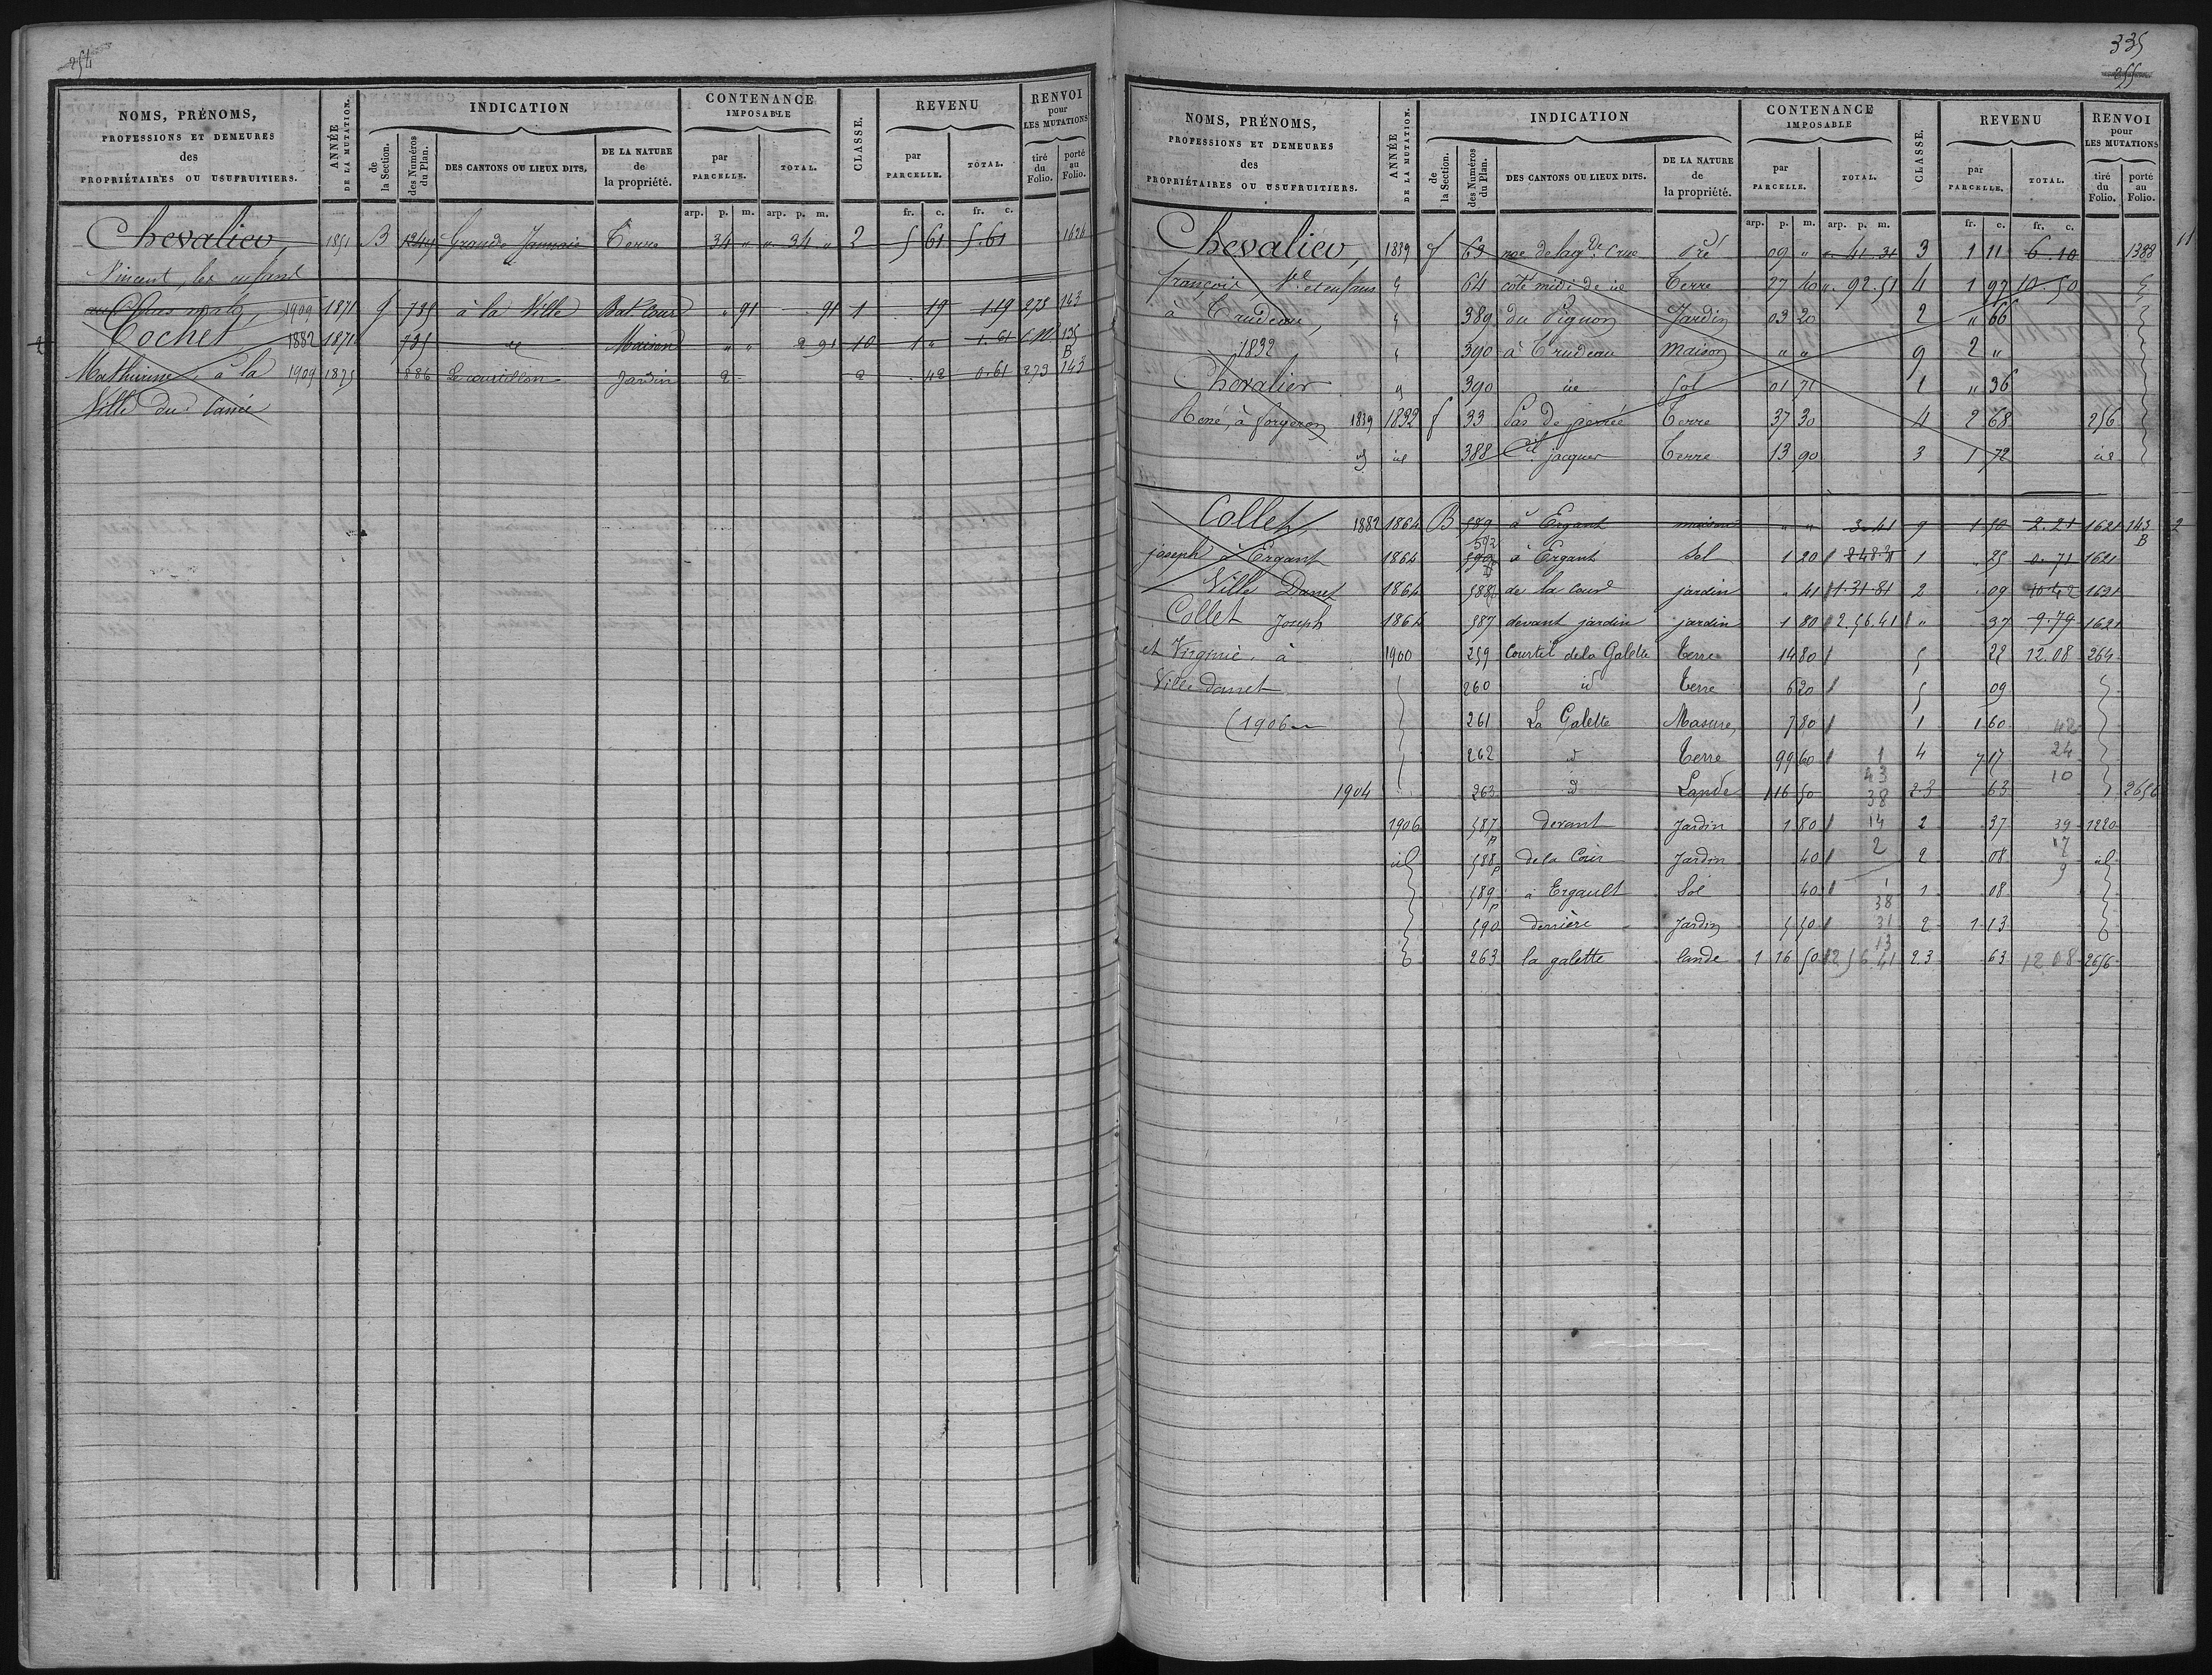 254
NOMS, PRÉNOMS, PROFESSIONS ET DEMEURES des PROPRIÉTAIRES OU USUFRUITIERS.
ANNÉE DE LA MUTATION.
INDICATION
de la Section.
des Numéros du Plan.
DES CANTONS OU LIEUX DITS.
DE LA NATURE de la propriété.
CONTENANCE IMPOSABLE
par PARCELLE.
TOTAL.
CLASSE.
REVENU
par PARCELLE.
TOTAL.
RENVOI pour LES MUTATIONS
tiré du Folio.
porté au Folio.
arp. p. m. arp. p. m. fr. c. fr. c.
Chevalier, 1851 B 1249 Grande Terre 34 " " 34 " 2 5 61 5.61 1626
Vincent, les enfans
1909 1871 f 735 à la Ville Bat. Cour " 91 91 1 19 1.19 275 143
Cochet 1882 1871 735 id Maison " " 2 91 10 1 " 1.61 135 B
Mathurine à la 1909 1875 886 Le courtillon Jardin 2 2 42 0.61 273 143
Ville du
335
255
NOMS, PRÉNOMS, PROFESSIONS ET DEMEURES des PROPRIÉTAIRES OU USUFRUITIERS.
ANNÉE DE LA MUTATION.
INDICATION
de la Section.
des Numéros du Plan.
DES CANTONS OU LIEUX DITS.
DE LA NATURE de la propriété.
CONTENANCE IMPOSABLE
par PARCELLE.
TOTAL.
CLASSE.
REVENU
par PARCELLE.
TOTAL.
RENVOI pour LES MUTATIONS
tiré du Folio.
porté au Folio.
arp. p. m. arp. p. m. fr. c. fr. c.
Chevalier, 1839 f 63 Pré 09 " " 41.31 3 1 11 6.10 1388 11
françois, Ve et enfans 64 coté midi de id Terre 27 40 " 92.51 4 1 97 10.50
à Trudeau, 389 du Pignon Jardin 03 20 2 " 66
1832 390 à Trudeau maison " " 9 2 "
Chevalier 390 id Sol 01 71 1 " 36
René, à forgeron 1839 1832 f 33 Pas de Terre 37 30 4 2 68 256
id id 388 jacques Terre 13 90 3 1 72 id
Collet, 1882 1864 B 589 à Ergant maison " " 3.41 9 1 50 2.21 1621 143 B 2
joseph à Ergant 1864 592 590 à Ergant Sol 1 20 1 85 0.71 1621
Ville Danet 1864 588 de la cour jardin " 41 1.31.81 2 09 10.42 1621
Collet Joseph 1864 587 devant jardin jardin 1 80 2.56.41 " 37 9.79 1621
et Virginie, à 1900 259 Courtil de la Galette Terre 14 80 5 22 12.08 264
Ville danet 260 id Terre 6 20 5 09
(1906 261 La Galette Masure 7 80 1 1 60 42
262 id Terre 99 60 1 4 7 17 24
1904 263 id Lande 1 16 50 43 38 2.3 63 10 2656
1906 587 p devant Jardin 1 80 14 2 37 39 1220
id 588 p de la Cour Jardin 40 2 2 08 17 id
589 p à Ergault Sol 40 1 1 08 9
590 derrière Jardin 5 50 38 31 2 1 13
263 la galette lande 1 16 50 13 2 56 41 2.3 63 12 08 2656